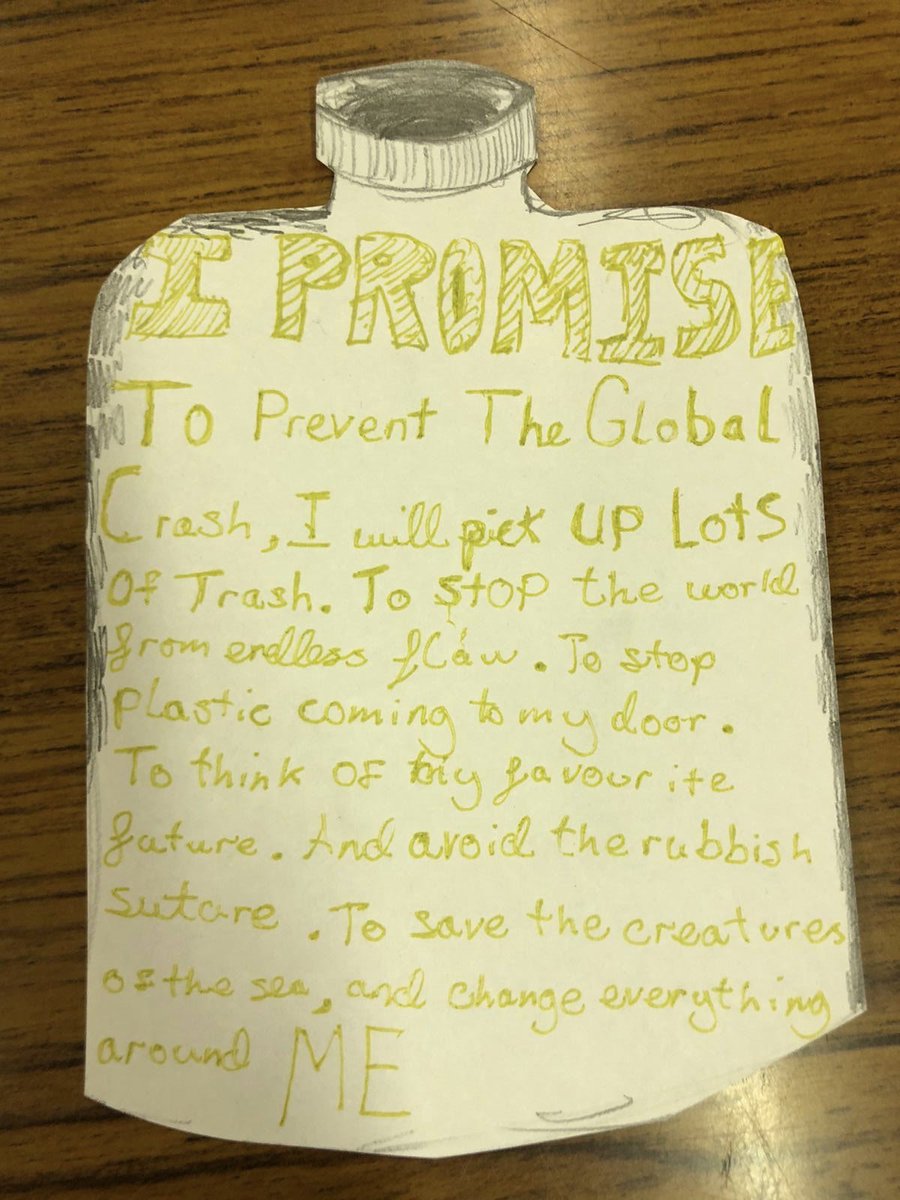 I PROMISE
To Prevent The Global
Crash, I will pick up Lots
Of Trash. To stop the world
from endless flaw. To stop
plastic coming to my door.
To think of my favourite
future. And avoid the rubbish
suture. To save the creatures
of the sea, and change everything
around ME